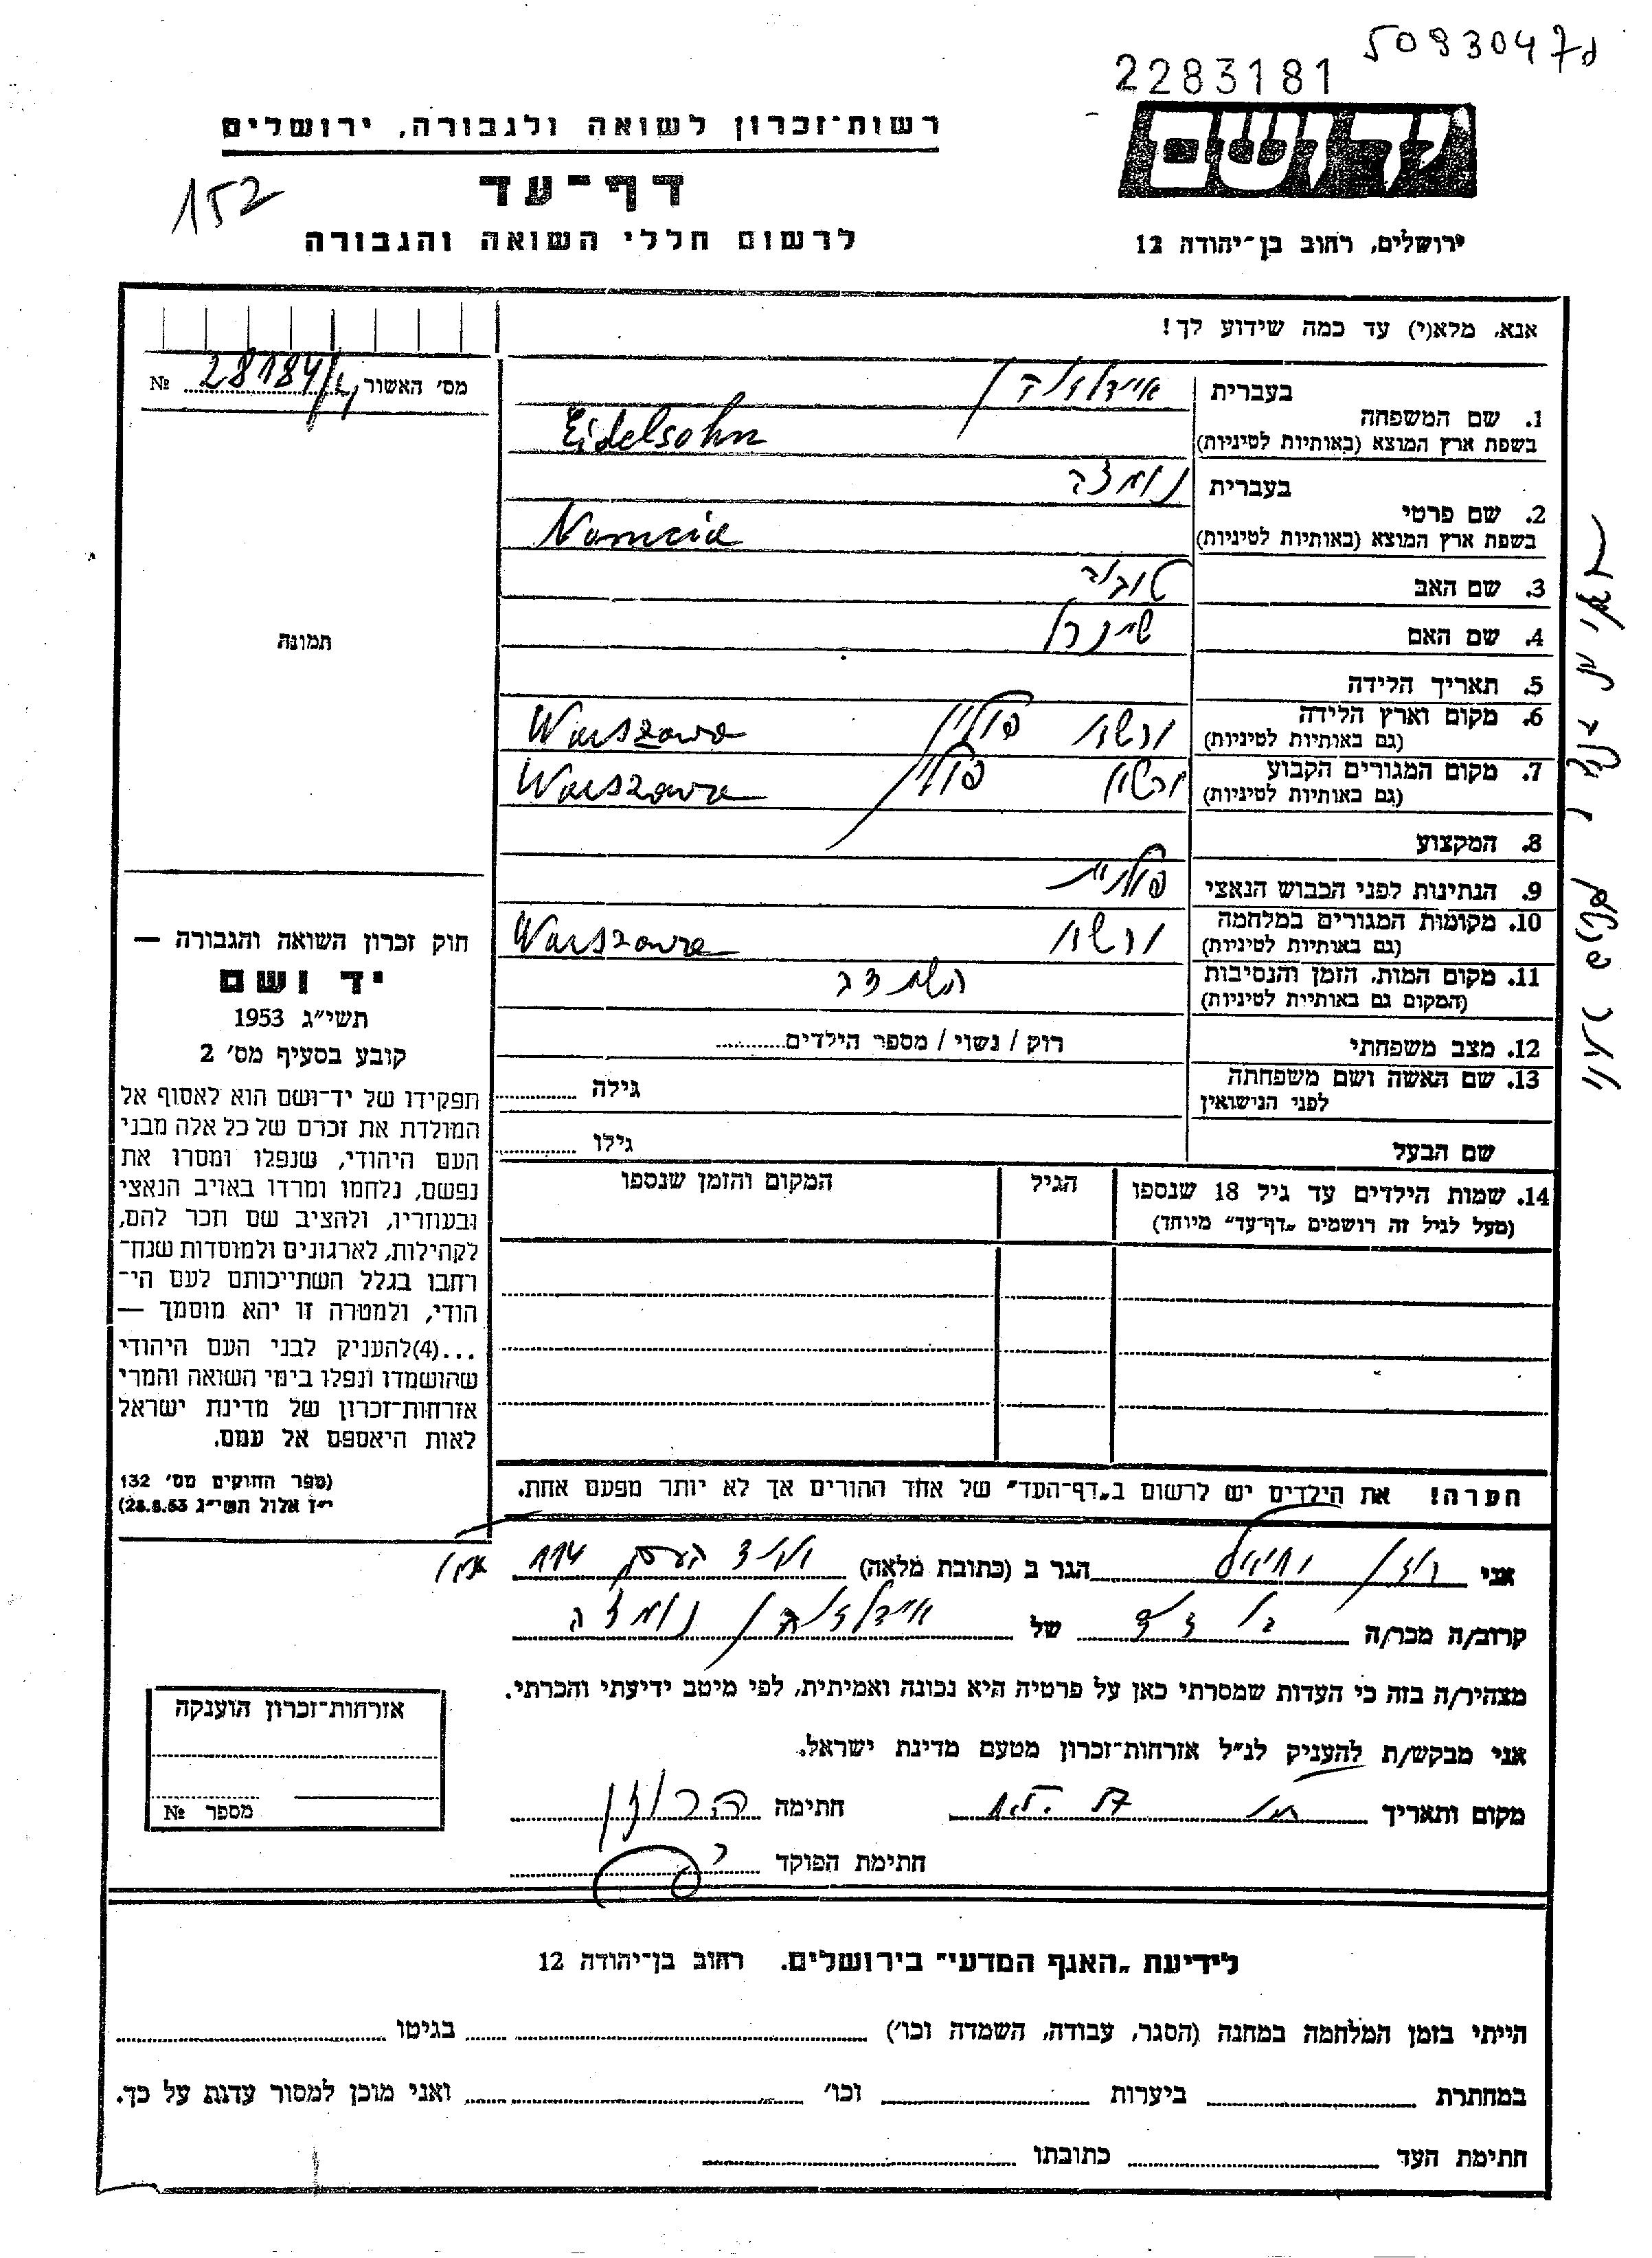 50930472
2283181
רשות־זכרון לשואה ולגבורה, ירושלים
יד ושם
דף־עד
152
לרשום חללי השואה והגבורה
ירושלים, רחוב בן־יהודה 12
אנא, מלא(י) עד כמה שידוע לך!
מס' האשור 28184/ №
1. שם המשפחה
בעברית
בשפת ארץ המוצא (באותיות לטיניות) Eidelsohn
2. שם פרטי
בעברית נומצה
בשפת ארץ המוצא (באותיות לטיניות) Nomcia
3. שם האב טוביה
4. שם האם שיינדל
5. תאריך הלידה
6. מקום וארץ הלידה ורשה פולין Warszawa
(גם באותיות לטיניות)
7. מקום המגורים הקבוע ורשה פולין Warszawa
(גם באותיות לטיניות)
8. המקצוע
9. הנתינות לפני הכבוש הנאצי פולנית
10. מקומות המגורים במלחמה ורשה Warszawa
(גם באותיות לטיניות)
11. מקום המות, הזמן והנסיבות
(המקום גם באותיות לטיניות)
12. מצב משפחתי רוק / נשוי / מספר הילדים
13. שם האשה ושם משפחתה
לפני הנישואין גילה
שם הבעל גילו
14. שמות הילדים עד גיל 18 שנספו
(מעל לגיל זה רושמים „דף־עד” מיוחד)
הגיל
המקום והזמן שנספו
תמונה
חוק זכרון השואה והגבורה —
יד ושם
תשי"ג 1953
קובע בסעיף מס' 2
תפקידו של יד־ושם הוא לאסוף אל
המולדת את זכרם של כל אלה מבני
העם היהודי, שנפלו ומסרו את
נפשם, נלחמו ומרדו באויב הנאצי
ובעוזריו, ולהציב שם וזכר להם,
לקהילות, לארגונים ולמוסדות שנח־
רחבו בגלל השתייכותם לעם הי־
הודי, ולמטרה זו יהא מוסמך —
...(4)להעניק לבני העם היהודי
שהושמדו ונפלו בימי השואה והמרי
אזרחות־זכרון של מדינת ישראל
לאות היאספם אל עמם.
(ספר החוקים מס' 132
י"ז אלול תשי"ג 28.8.53)
הערה! את הילדים יש לרשום ב„דף־העד” של אחד ההורים אך לא יותר מפעם אחת.
אני רוזן הגר ב (כתובת מלאה) 114
קרוב/ה מכר/ה בן דוד של אידלזוהן נומצה
מצהיר/ה בזה כי העדות שמסרתי כאן על פרטיה היא נכונה ואמיתית, לפי מיטב ידיעתי והכרתי.
אני מבקש/ת להעניק לנ"ל אזרחות־זכרון מטעם מדינת ישראל.
מקום ותאריך חתימה
חתימת הפוקד
אזרחות־זכרון הוענקה
מספר №
לידיעת „האגף המדעי” בירושלים. רחוב בן־יהודה 12
הייתי בזמן המלחמה במחנה (הסגר, עבודה, השמדה וכו') בגיטו
במחתרת ביערות וכו' ואני מוכן למסור עדות על כך.
חתימת העד כתובתו